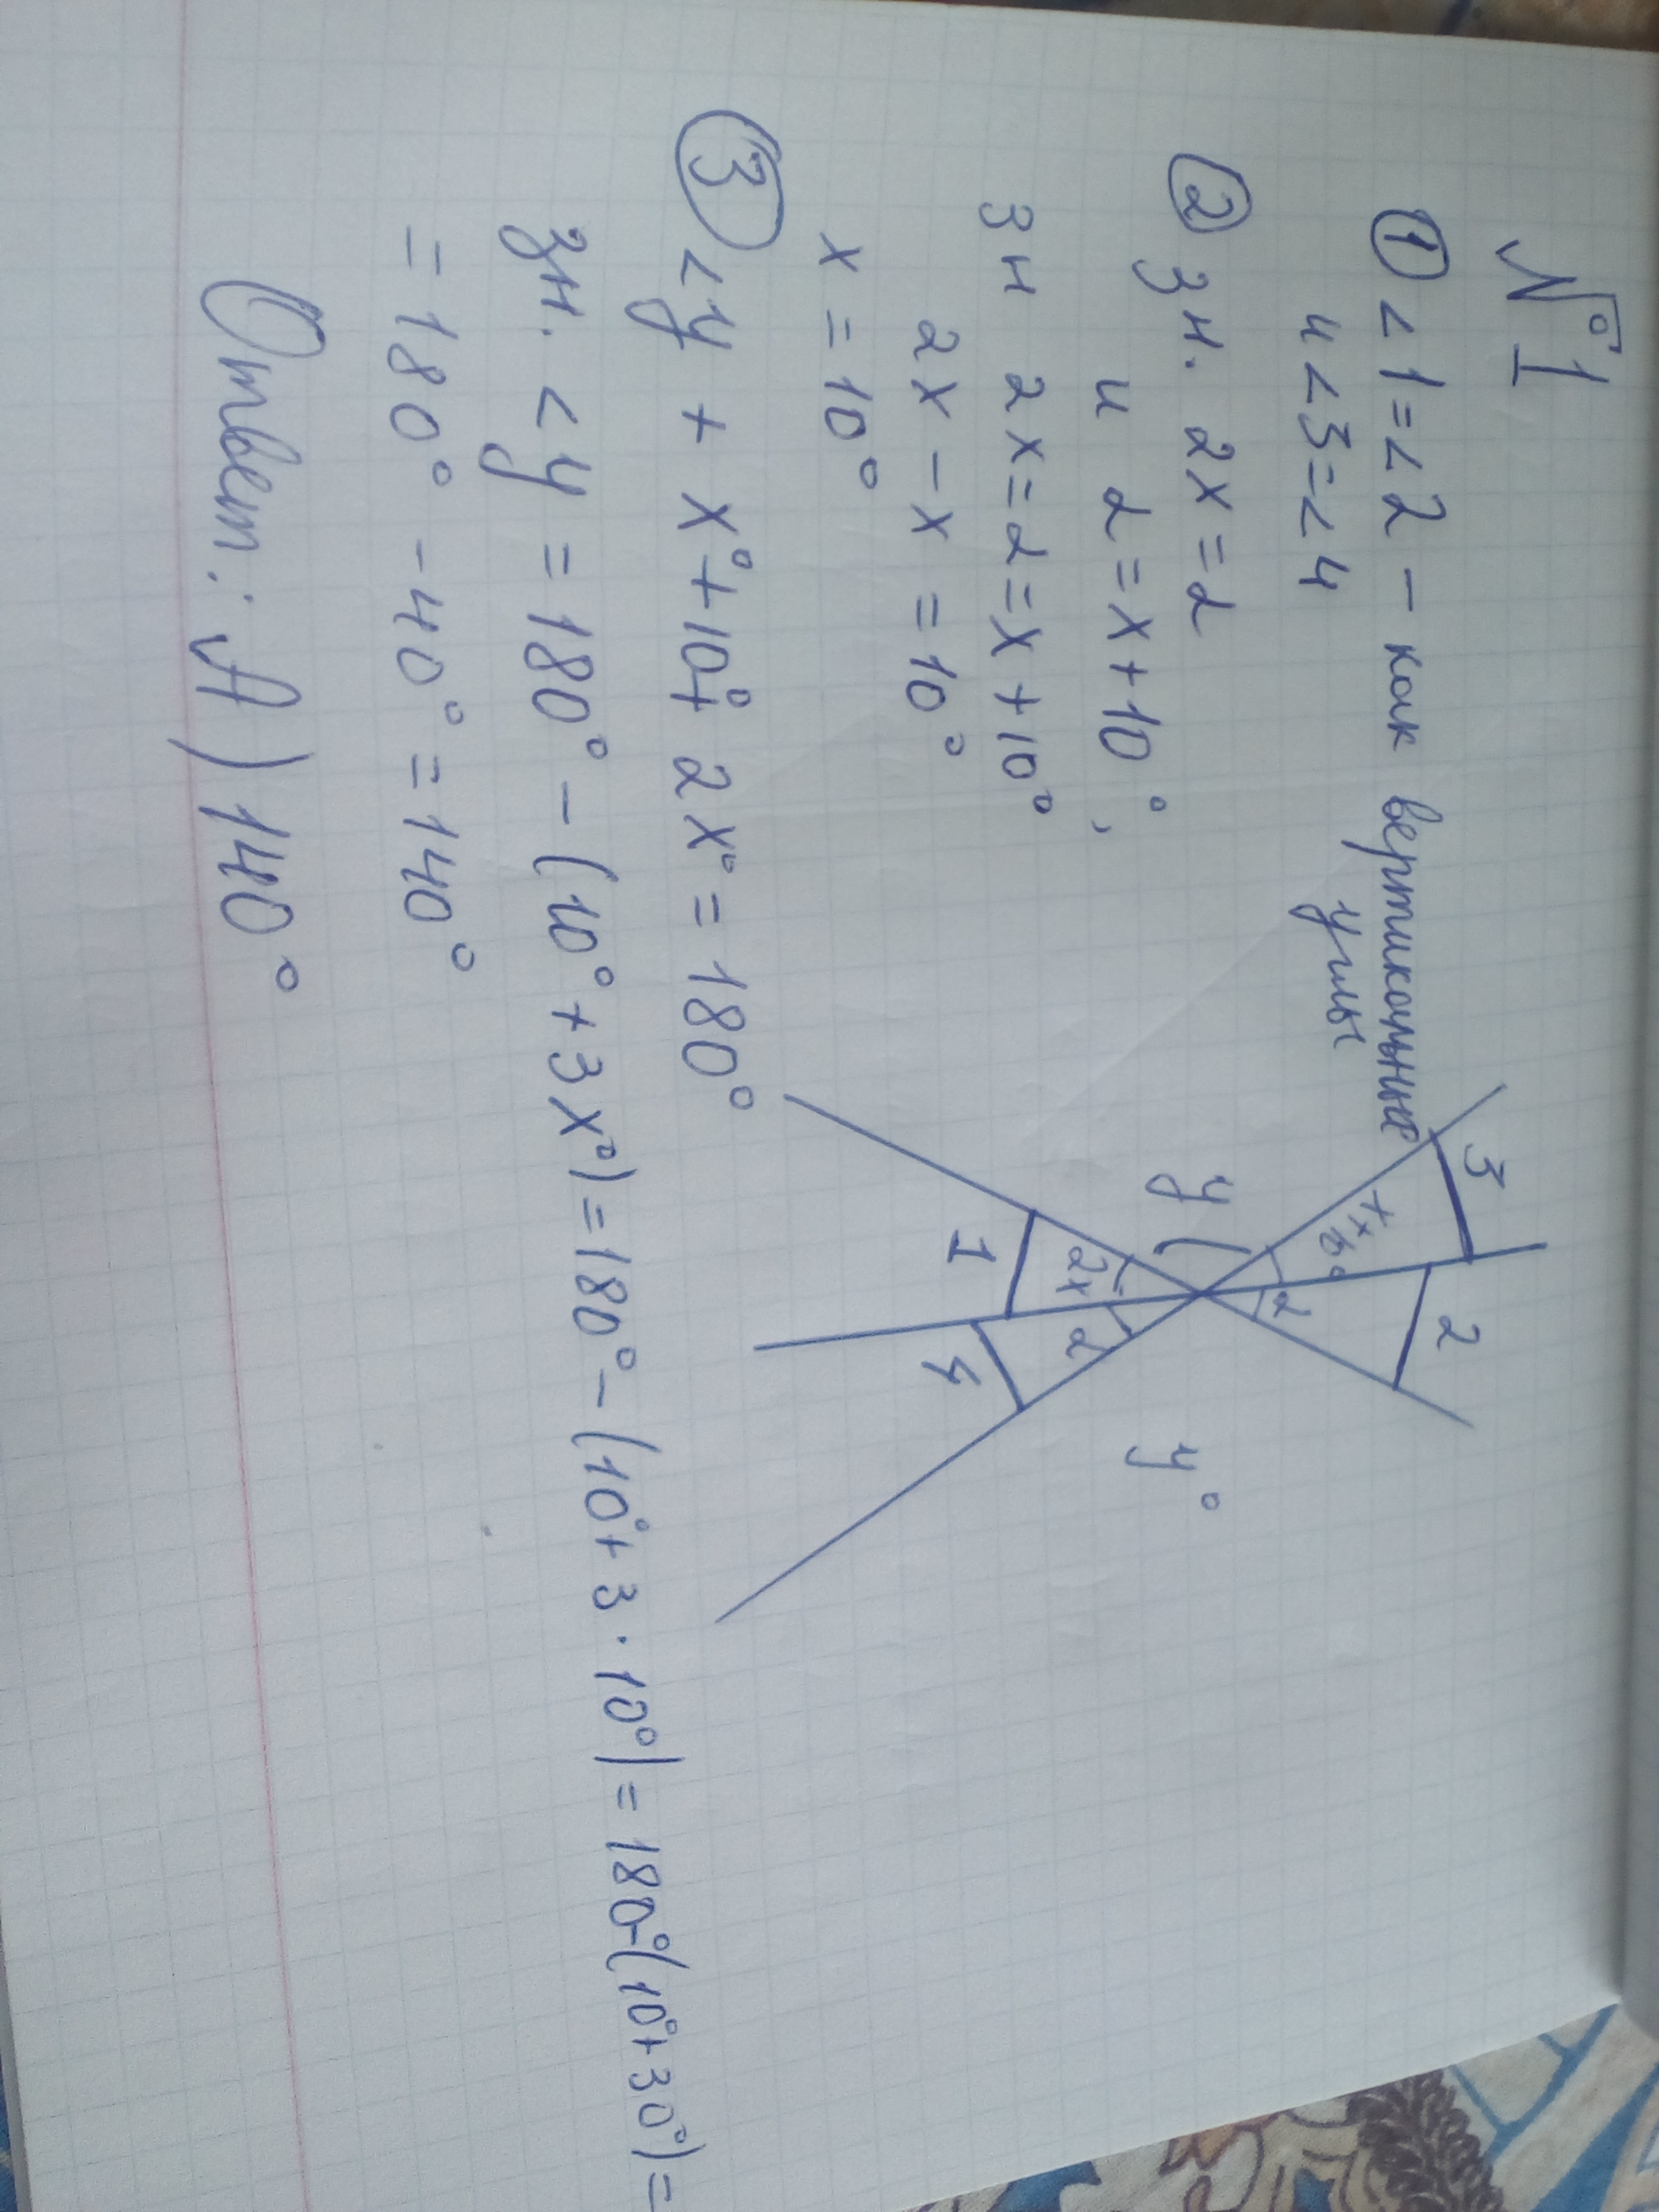 №1
① <1=<2 – как вертикальные
и <3=<4 углы
② зн. 2x=α
и α=x+10°,
зн 2x=α=x+10°
2x-x=10°
x=10°
③ <y + x°+10°+2x°=180°
зн. <y=180°-(10°+3x°)=180°-(10°+3·10°)=180°-(10°+30°)=
=180°-40°=140°
Ответ: А) 140°
3
2
α
y
y°
2x
α
1
4